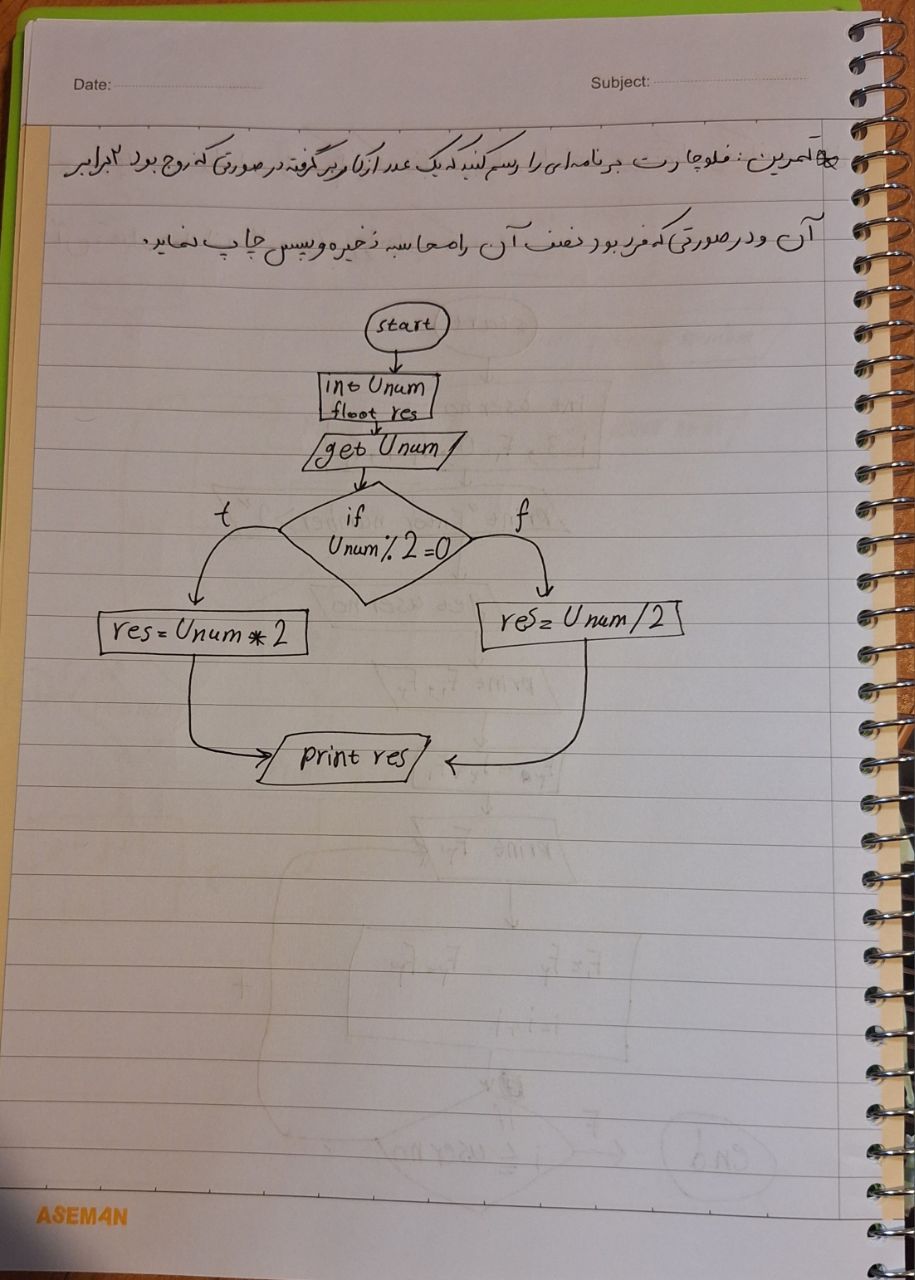 Date:
Subject:
تمرین : فلوچارت برنامه‌ای را رسم کنید که یک عدد از کاربر گرفته در صورتی که زوج بود ۲ برابر
آن و در صورتی که فرد بود نصف آن را محاسبه ذخیره و سپس چاپ نماید.
start
int Unum
float res
get Unum
t
if
f
Unum % 2 = 0
res = Unum * 2
res = Unum / 2
print res
ASEMAN